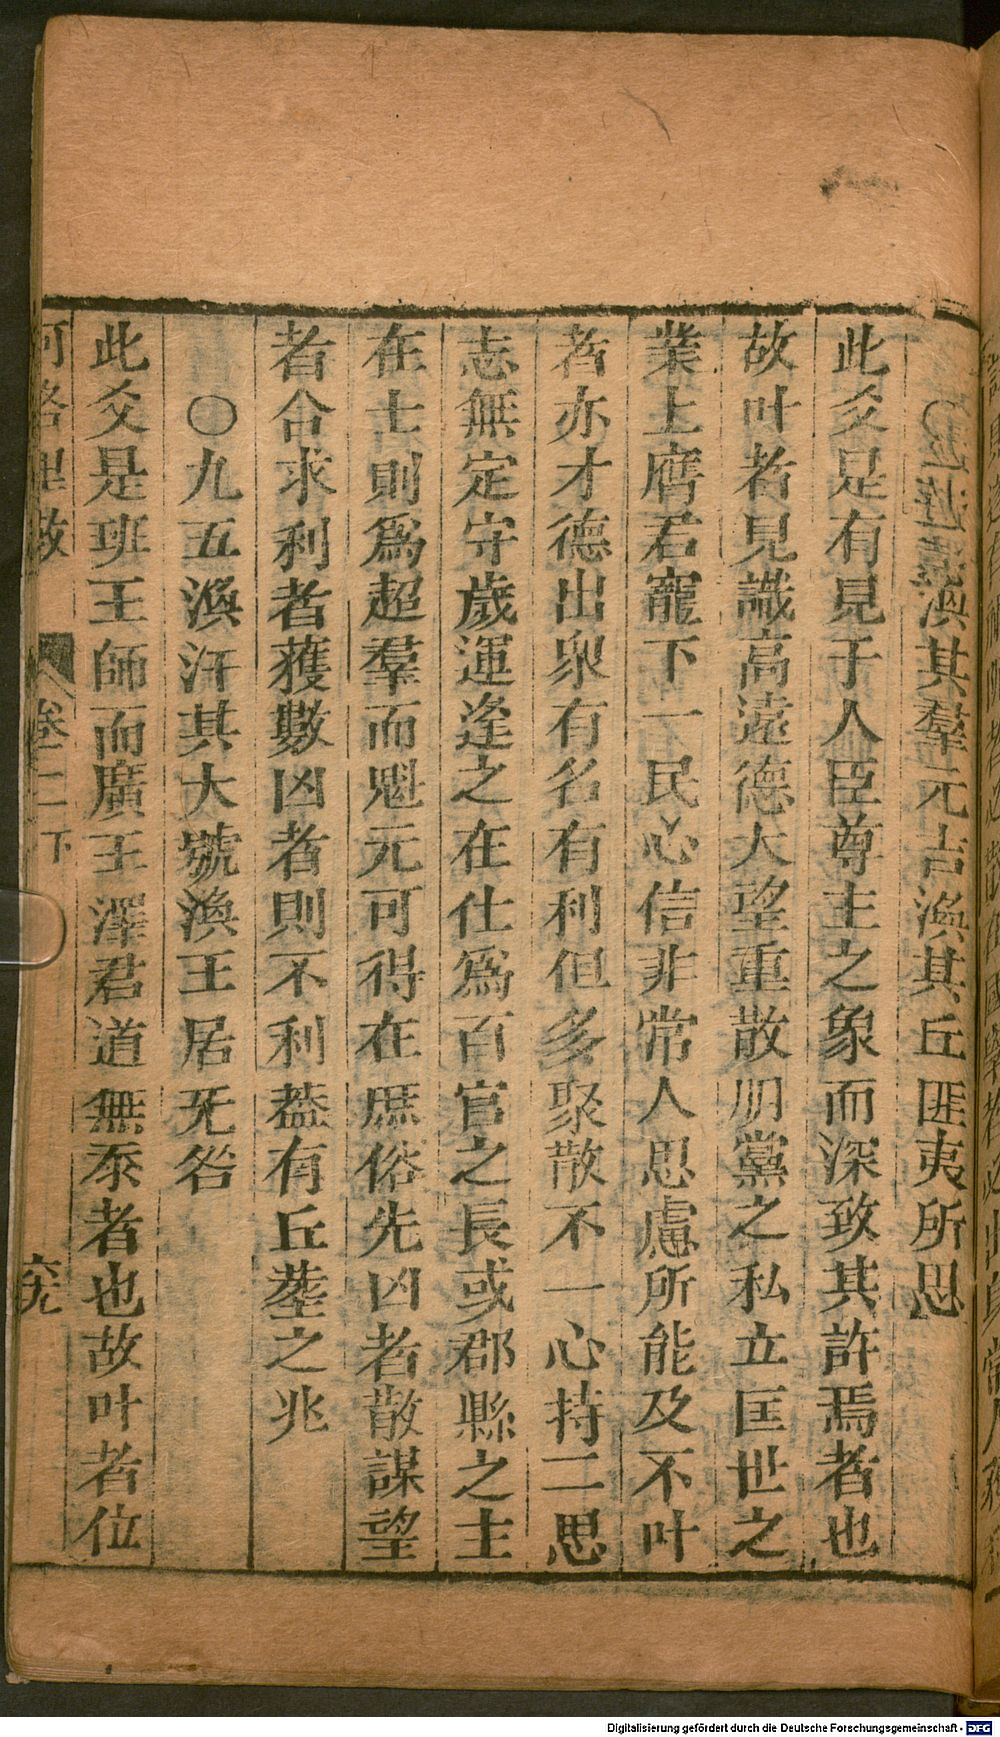 ○渙其羣元吉渙其丘匪夷所思
此爻是有見于人臣尊主之象而深致其許焉者也
故叶者見識高遠德大望重散朋黨之私立匡世之
業上膺君寵下一民心信非常人思慮所能及不叶
者亦才德出眾有名有利但多聚散不一心持二思
志無定守歲運逢之在仕爲百官之長或郡縣之主
在士則爲超羣而魁元可得在庶俗先凶者散謀望
者合求利者獲數凶者則不利葢有丘塟之兆
○九五渙汗其大號渙王居旡咎
此爻是班王師而廣王澤君道無忝者也故叶者位
河洛理數
卷二下
六九
Digitalisierung gefördert durch die Deutsche Forschungsgemeinschaft - DFG